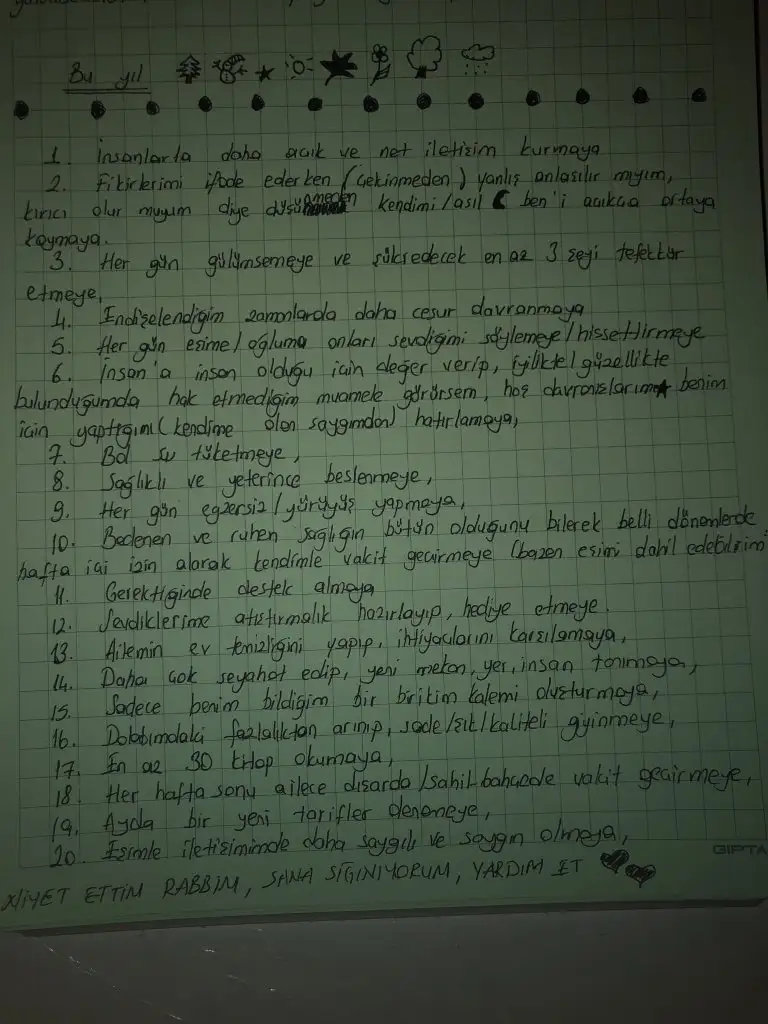 Bu yıl
1. İnsanlarla daha açık ve net iletişim kurmaya
2. Fikirlerimi ifade ederken (çekinmeden) yanlış anlaşılır mıyım,
kırıcı olur muyum diye düşünmeden kendimi/asıl ben'i açıkça ortaya
koymaya.
3. Her gün gülümsemeye ve şükredecek en az 3 şeyi tefekkür
etmeye,
4. Endişelendiğim zamanlarda daha cesur davranmaya
5. Her gün eşime/oğluma onları sevdiğimi söylemeye/hissettirmeye
6. İnsan'a insan olduğu için değer verip, iyilikte/güzellikte
bulunduğumda hak etmediğim muamele görürsem, hoş davranışlarımı benim
için yaptığımı (kendime olan saygımdan) hatırlamaya,
7. Bol su tüketmeye,
8. Sağlıklı ve yeterince beslenmeye,
9. Her gün egzersiz/yürüyüş yapmaya,
10. Bedenen ve ruhen sağlığın bütün olduğunu bilerek belli dönemlerde
hafta içi izin alarak kendimle vakit geçirmeye (bazen eşimi dahil edebilirim)
11. Gerektiğinde destek almaya
12. Sevdiklerime atıştırmalık hazırlayıp, hediye etmeye.
13. Ailemin ev temizliğini yapıp, ihtiyaçlarını karşılamaya,
14. Daha çok seyahat edip, yeni mekan, yer, insan tanımaya,
15. Sadece benim bildiğim bir birikim kalemi oluşturmaya,
16. Dolabımdaki fazlalıktan arınıp, sade/şık/kaliteli giyinmeye,
17. En az 30 kitap okumaya,
18. Her hafta sonu ailece dışarda/sahil-bahçede vakit geçirmeye,
19. Ayda bir yeni tarifler denemeye,
20. Eşimle iletişimimde daha saygılı ve saygın olmaya,
GIPTA
NİYET ETTİM RABBİM, SANA SIĞINIYORUM, YARDIM ET